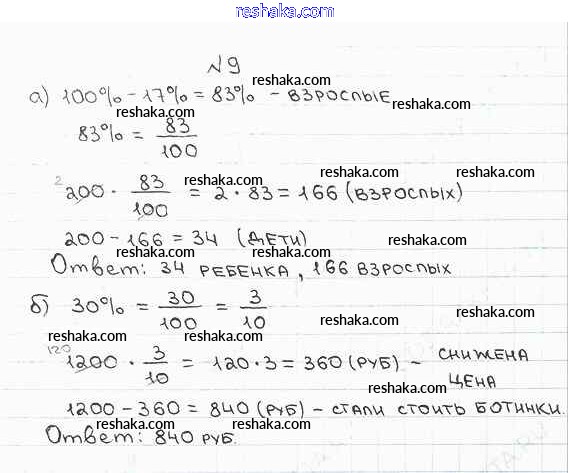 reshaka.com
№9
reshaka.com
а) 100% - 17% = 83% - ВЗРОСЛЫЕ
reshaka.com
83% = 83/100
reshaka.com reshaka.com
2
200 · 83/100 = 2 · 83 = 166 (ВЗРОСЛЫХ)
reshaka.com reshaka.com
200 - 166 = 34 (ДЕТИ)
reshaka.com
Ответ: 34 РЕБЕНКА, 166 ВЗРОСЛЫХ
reshaka.com
б) 30% = 30/100 = 3/10
reshaka.com
reshaka.com reshaka.com
120
1200 · 3/10 = 120 · 3 = 360 (РУБ) - СНИЖЕНА ЦЕНА
reshaka.com
1200 - 360 = 840 (РУБ) - СТАЛИ СТОИТЬ БОТИНКИ.
reshaka.com reshaka.com
Ответ: 840 РУБ.